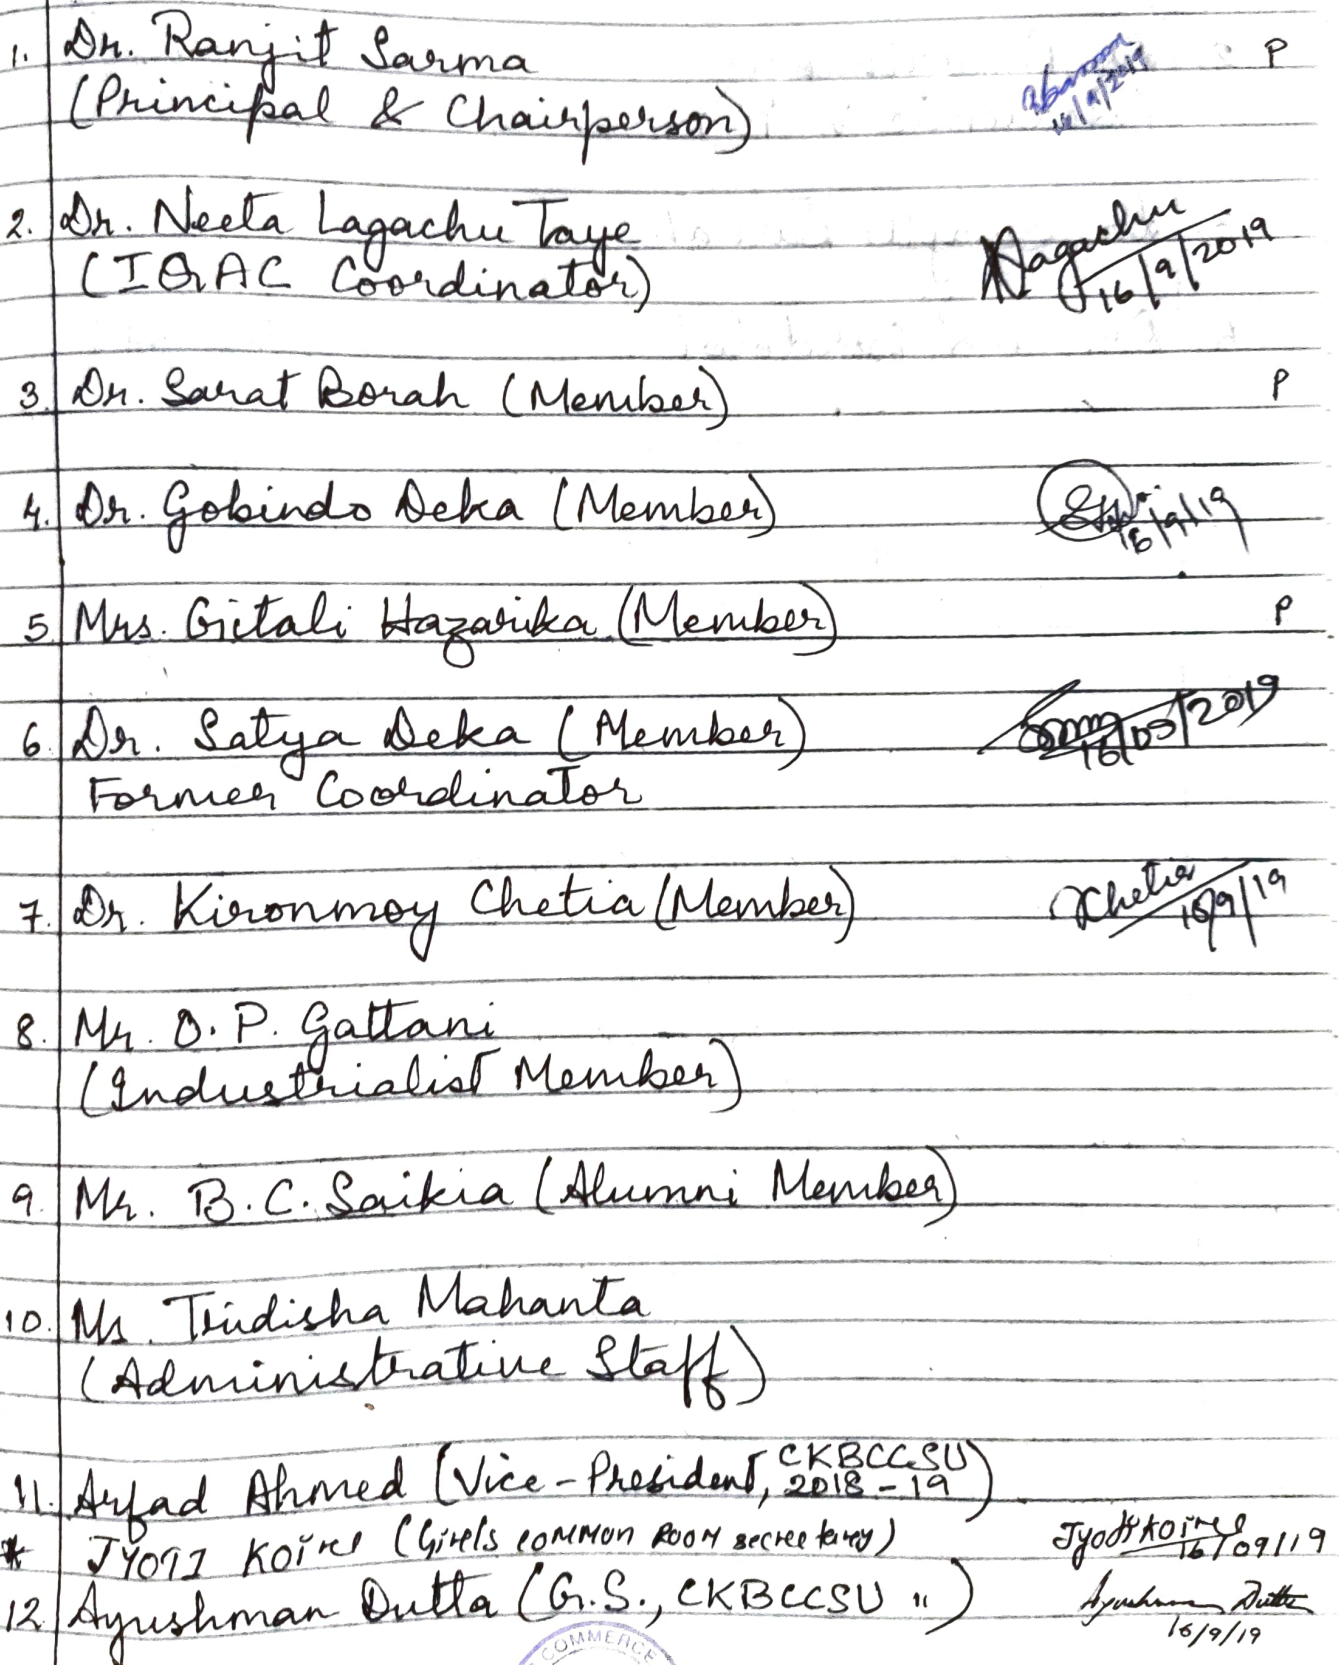 1. Dr. Ranjit Sarma P
(Principal & Chairperson) 16/9/2019
2. Dr. Neeta Lagachu Taye Lagachu
(IQAC Coordinator) 16/9/2019
3. Dr. Sarat Borah (Member) P
4. Dr. Gobindo Deka (Member) 16/9/19
5. Mrs. Gitali Hazarika (Member) P
6. Dr. Satya Deka (Member) 16/09/2019
Former Coordinator
7. Dr. Kironmoy Chetia (Member) Chetia 16/9/19
8. Mr. O. P. Gattani
(Industrialist Member)
9. Mr. B. C. Saikia (Alumni Member)
10. Ms. Tridisha Mahanta
(Administrative Staff)
11. Arfad Ahmed (Vice-President, CKBCCSU 2018-19)
* JYOTI KOIRI (Girls COMMON ROOM secretary) Jyoti KOIRI 16/09/19
12. Ayushman Dutta (G.S., CKBCCSU ") Ayushman Dutta
16/9/19
COMMERCE